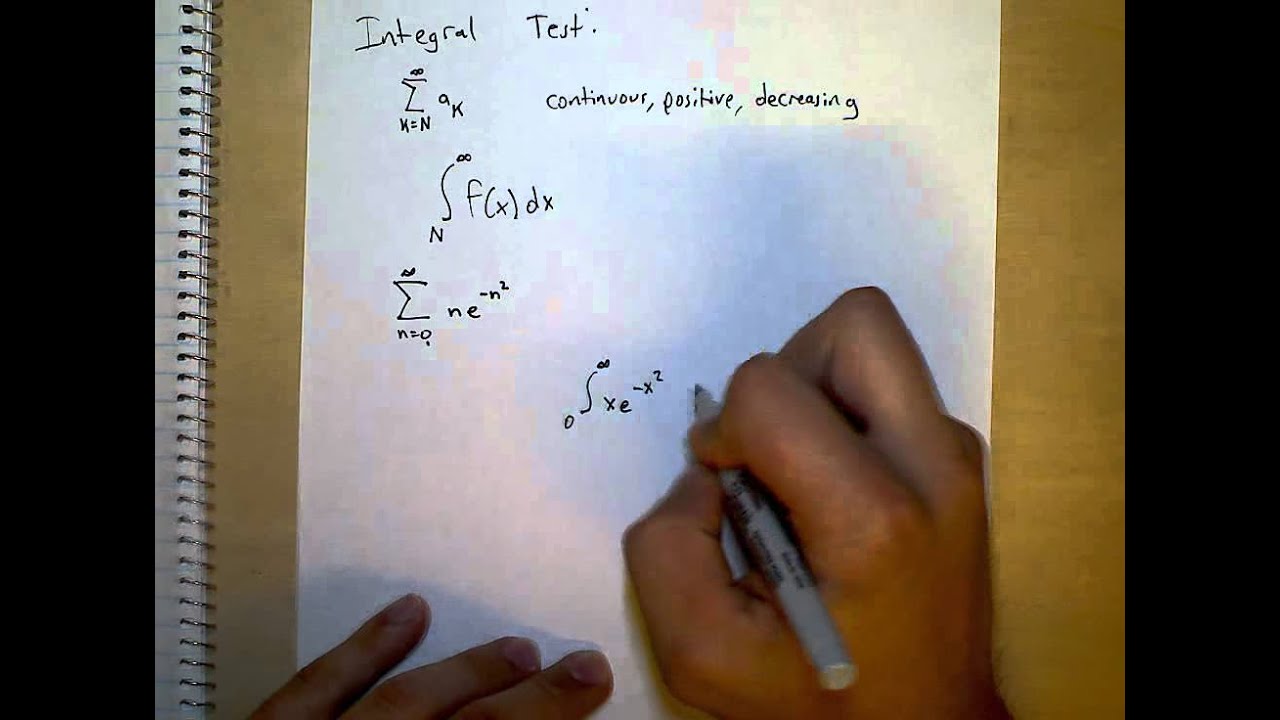 Integral Test:
∞
∑ a_K continuous, positive, decreasing
K=N
∞
∫ f(x) dx
N
∞
∑ ne^{-n²}
n=0
∞
∫ xe^{-x²}
0